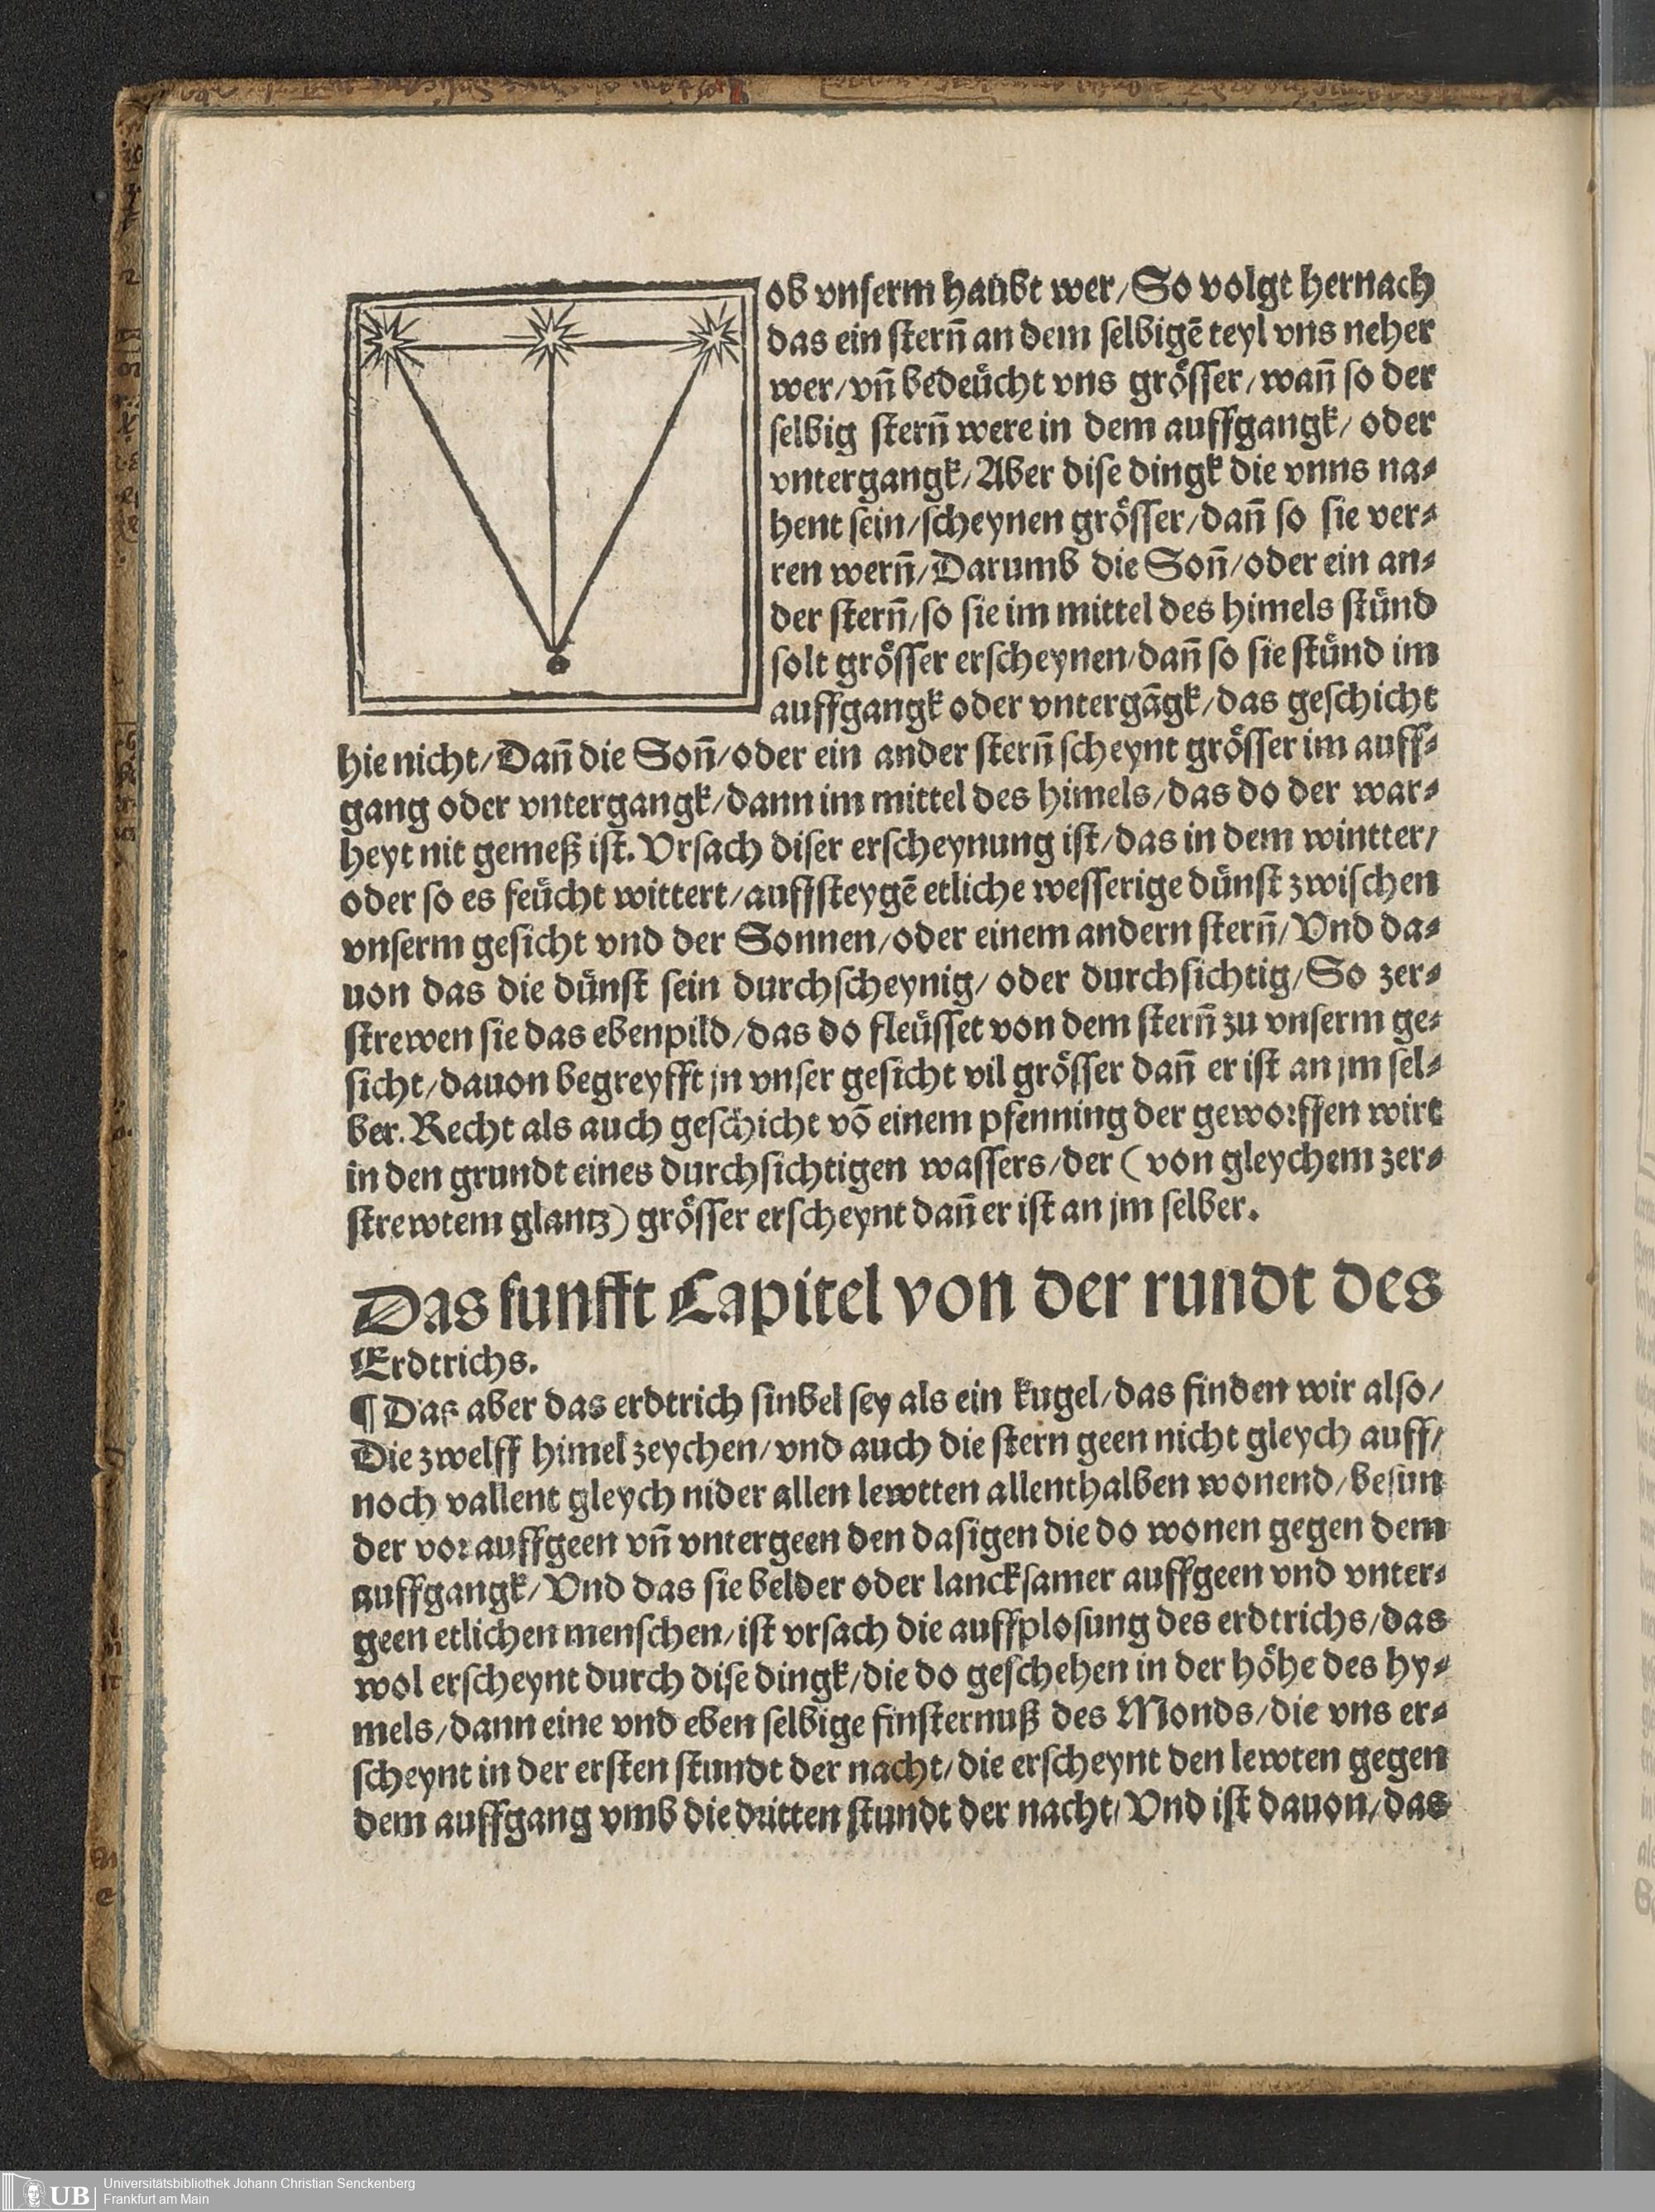 ob vnſerm haubt wer/So volgt hernach
das ein ſtern̄ an dem ſelbigē teyl vns neher
wer/vn̄ bedeücht vns gröſſer/wan̄ ſo der
ſelbig ſtern̄ were in dem auffgangk/oder
vntergangk/Aber diſe dingk die vnns na⸗
hent ſein/ſcheynen gröſſer/dan̄ ſo ſie ver⸗
ren wern̄/Darumb die Son̄/oder ein an⸗
der ſtern̄/ſo ſie im mittel des himels ſtünd
ſolt gröſſer erſcheynen/dan̄ ſo ſie ſtünd im
auffgangk oder vntergāgk/das geſchicht
hie nicht/Dan̄ die Son̄/oder ein ander ſtern̄ ſcheynt gröſſer im auff⸗
gang oder vntergangk/dann im mittel des himels/das do der war⸗
heyt nit gemeß iſt. Vrſach diſer erſcheynung iſt/das in dem wintter/
oder ſo es feücht wittert/auffſteygē etliche weſſerige dünſt zwiſchen
vnſerm geſicht vnd der Sonnen/oder einem andern ſtern̄/Vnd da⸗
uon das die dünſt ſein durchſcheynig/oder durchſichtig/So zer⸗
ſtrewen ſie das ebenpild/das do fleüſſet von dem ſtern̄ zu vnſerm ge⸗
ſicht/dauon begreyfft jn vnſer geſicht vil gröſſer dan̄ er iſt an jm ſel⸗
ber. Recht als auch geſchicht vō einem pfenning der geworffen wirt
in den grundt eines durchſichtigen waſſers/der (von gleychem zer⸗
ſtrewtem glantz) gröſſer erſcheynt dan̄ er iſt an jm ſelber.
Das funfft Capitel von der rundt des
Erdtrichs.
¶ Das aber das erdtrich ſinbel ſey als ein kugel/das finden wir alſo/
Die zwelff himel zeychen/vnd auch die ſtern geen nicht gleych auff/
noch vallent gleych nider allen lewtten allenthalben wonend/beſun
der vor auffgeen vn̄ vntergeen den daſigen die do wonen gegen dem
auffgangk/Vnd das ſie belder oder lanckſamer auffgeen vnd vnter⸗
geen etlichen menſchen/iſt vrſach die auffploſung des erdtrichs/das
wol erſcheynt durch diſe dingk/die do geſchehen in der höhe des hy⸗
mels/dann eine vnd eben ſelbige finſternuß des Monds/die vns er⸗
ſcheynt in der erſten ſtundt der nacht/die erſcheynt den lewten gegen
dem auffgang vmb die dritten ſtundt der nacht/Vnd iſt dauon/das
UB Universitätsbibliothek Johann Christian Senckenberg
Frankfurt am Main